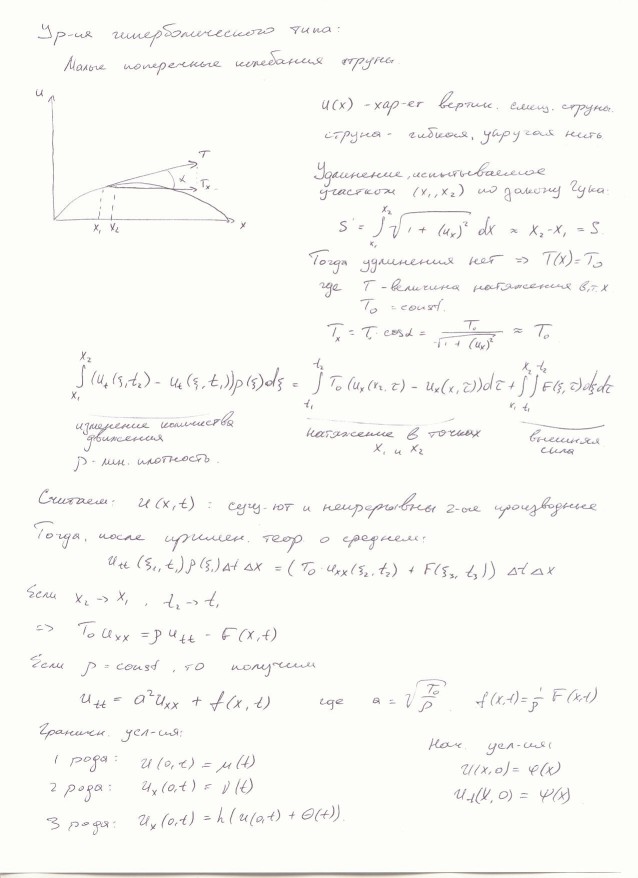 Ур-ия гиперболического типа:
Малые поперечные колебания струны
u
T
α
Tₓ
x₁ x₂
x
u(x) - хар-ет вертик. смещ. струны.
струна - гибкая, упругая нить
Удлинение, испытываемое
участком (x₁, x₂) по закону Гука:
S' = ∫_{x₁}^{x₂} √(1 + (uₓ)²) dx ≈ x₂ - x₁ = S.
Тогда удлинения нет ⇒ T(x) = T₀
где T - величина натяжения в т. x
T₀ = const.
Tₓ = T · cos α = T₀ / √(1 + (uₓ)²) ≈ T₀
∫_{x₁}^{x₂} (u_t(ξ, t₂) - u_t(ξ, t₁)) ρ(ξ) dξ = ∫_{t₁}^{t₂} T₀ (uₓ(x₂, τ) - uₓ(x, τ)) dτ + ∫_{x₁}^{x₂} ∫_{t₁}^{t₂} F(ξ, τ) dξ dτ
измерение количества
движения
натяжение в точках
x₁ и x₂
внешняя
сила
ρ - лин. плотность.
Считаем: u(x, t) : сущ-ют и непрерывны 2-ые производные
Тогда, после примен. теор о среднем:
u_tt (ξ₁, t₁) ρ(ξ₁) Δt Δx = (T₀ · uₓₓ(ξ₂, t₂) + F(ξ₃, t₃)) Δt Δx
Если x₂ → x₁ , t₂ → t₁
⇒ T₀ uₓₓ = ρ u_tt - F(x, t)
Если ρ = const, то получим
u_tt = a² uₓₓ + f(x, t) где a = √(T₀/ρ) f(x, t) = 1/ρ F(x, t)
Граничн. усл-ия:
1 рода: u(0, t) = μ(t)
2 рода: uₓ(0, t) = ν(t)
3 рода: uₓ(0, t) = h(u(0, t) + θ(t)).
Нач. усл-ия:
u(x, 0) = φ(x)
u_t(x, 0) = ψ(x)